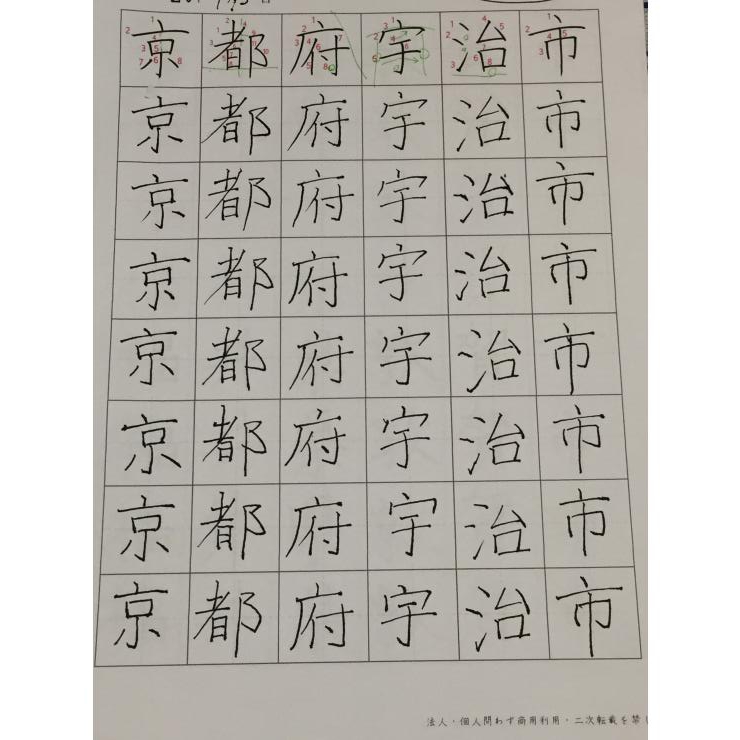 京都府宇治市
京都府宇治市
京都府宇治市
京都府宇治市
京都府宇治市
京都府宇治市
京都府宇治市
京都府宇治市
法人・個人問わず商用利用・二次転載を禁